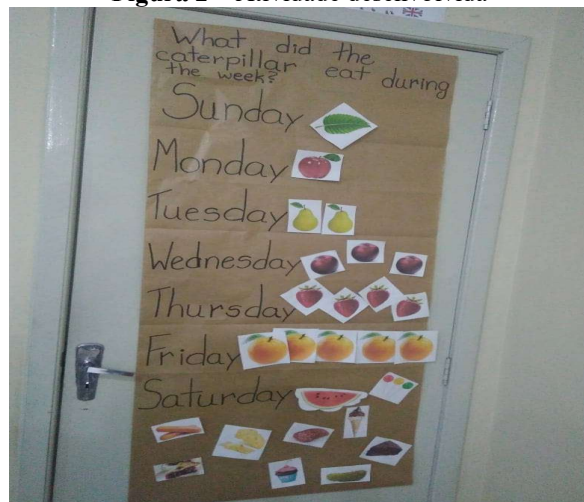 What did the
caterpillar eat during
the week?
Sunday
Monday
Tuesday
Wednesday
Thursday
Friday
Saturday